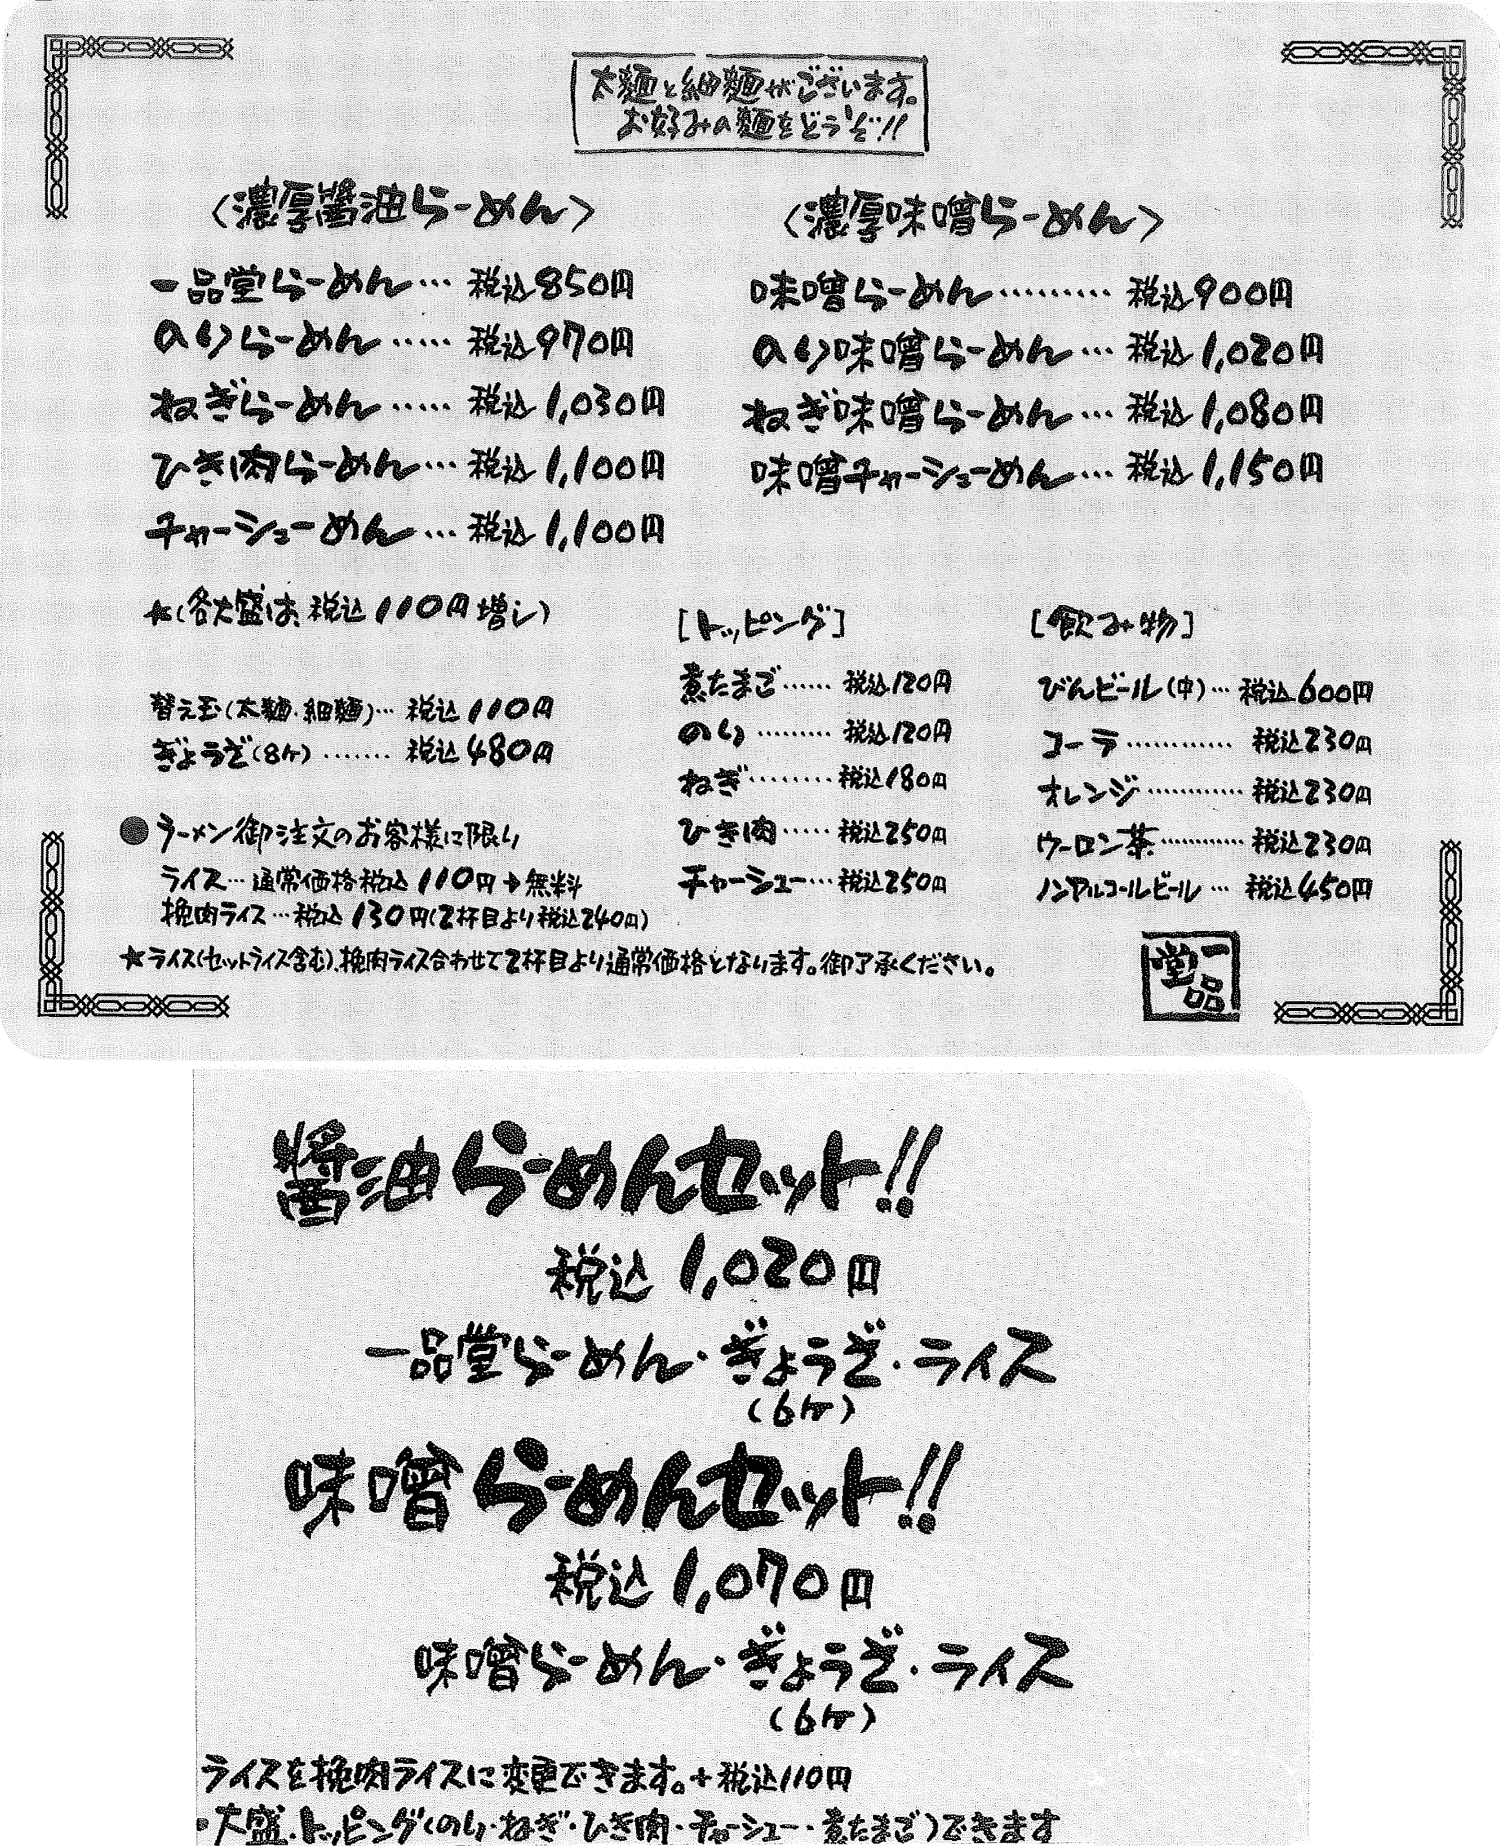 太麺と細麺がございます。
お好みの麺をどうぞ!!
〈濃厚醬油らーめん〉
一品堂らーめん… 税込850円
のりらーめん…… 税込970円
ねぎらーめん…… 税込1,030円
ひき肉らーめん… 税込1,100円
チャーシューめん… 税込1,100円
★(各大盛は、税込110円増し)
〈濃厚味噌らーめん〉
味噌らーめん……… 税込900円
のり味噌らーめん… 税込1,020円
ねぎ味噌らーめん… 税込1,080円
味噌チャーシューめん… 税込1,150円
替え玉(太麺・細麺)… 税込110円
ぎょうざ(8ヶ)……… 税込480円
[トッピング]
煮たまご…… 税込120円
のり……… 税込120円
ねぎ……… 税込180円
ひき肉…… 税込250円
チャーシュー… 税込250円
[飲み物]
びんビール(中)… 税込600円
コーラ………… 税込230円
オレンジ………… 税込230円
ウーロン茶………… 税込230円
ノンアルコールビール… 税込450円
●ラーメン御注文のお客様に限り
ライス…通常価格税込110円→無料
挽肉ライス…税込130円(2杯目より税込240円)
★ライス(セットライス含む)、挽肉ライス合わせて2杯目より通常価格となります。御了承ください。
一品堂
醬油らーめんセット!!
税込1,020円
一品堂らーめん・ぎょうざ・ライス
(6ヶ)
味噌らーめんセット!!
税込1,070円
味噌らーめん・ぎょうざ・ライス
(6ヶ)
ライスを挽肉ライスに変更できます。+税込110円
・大盛・トッピング(のり・ねぎ・ひき肉・チャーシュー・煮たまご)できます